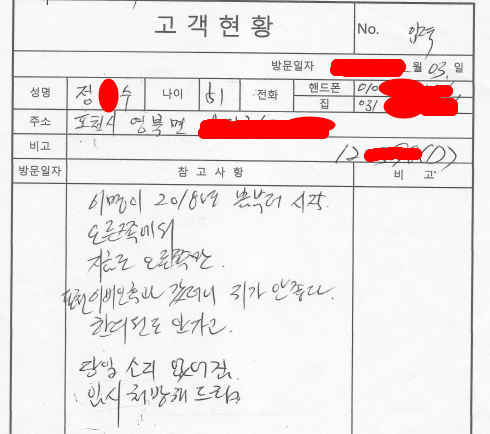 고객현황
No. 입력
방문일자 월 03. 일
성명 정 수 나이 61 전화 핸드폰 010
집 031
주소 포천시 영북면
비고 12
방문일자 참고사항 비고
이명이 2018년 봄부터 시작.
오른쪽에서
지금도 오른쪽만.
포천이비인후과 갔더니 귀가 안좋다.
한의원도 안가고.
당일 소리 없어짐.
임시 처방해 드림